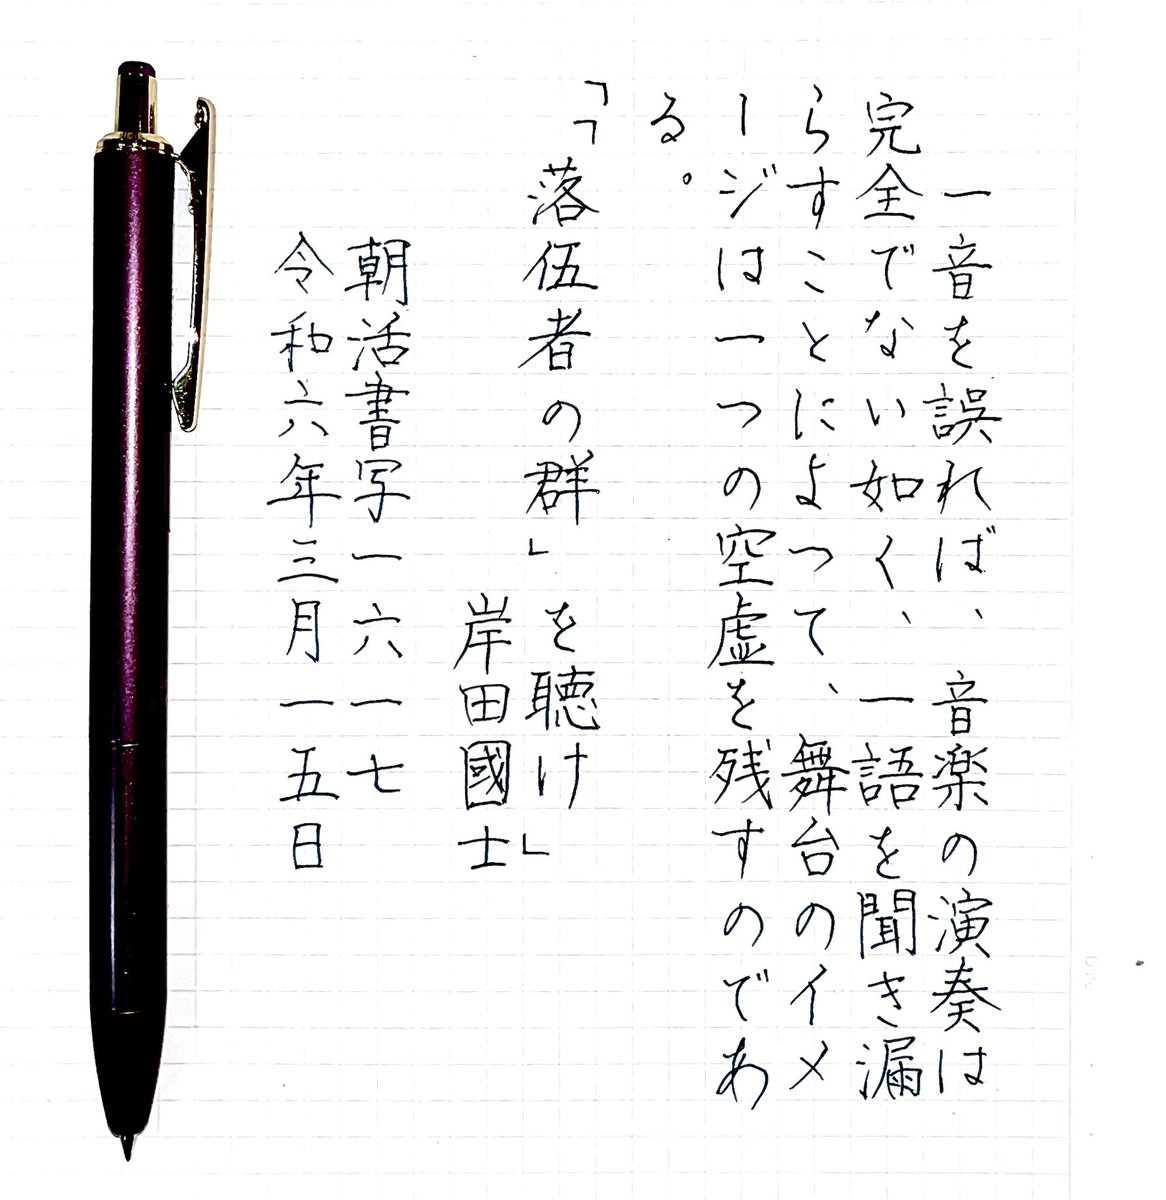 一音を誤れば、音楽の演奏は
完全でない如く、一語を聞き漏
らすことによつて、舞台のイメ
ージは一つの空虚を残すのであ
る。
「「落伍者の群」を聴け」
岸田國士
朝活書写一六一七
令和六年三月一五日